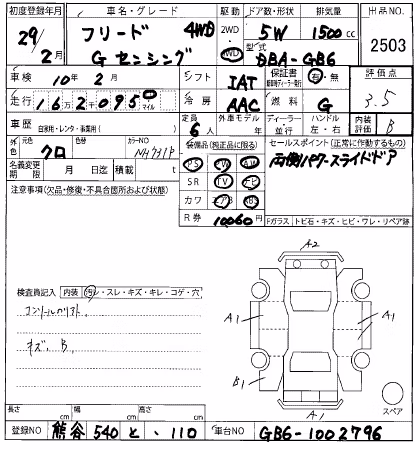 初度登録年月 車名・グレード 駆動 ドア数・形状 排気量 出品NO.
29年 2月 フリード 4WD 2WD 4WD 5W 1500cc 2503
Gセンシング 型式 DBA-GB6
車検 10年 2月 シフト IAT 保証書 有・無 評価点
走行 162095 マイル 冷房 AAC 燃料 G 3.5
車歴 自家用・レンタ・事業用( ) 定員 6人 外車モデル 年 ディーラー 並行 ハンドル 左・右 内装評価 B
外色 元色 クロ カラーNO NH731P 装備品(純正品に限る) セールスポイント(正常に作動するもの)
名義変更期限 月 日迄 積載 t PS PW AW 両側パワースライドドア
注意事項(欠品・修復・不具合箇所および状態) SR TV ナビ
カワ エアB ABS
R券 10060円 Fガラス トビ石・キズ・ヒビ・ワレ・リペア跡
A2
検査員記入 内装 汚レ・スレ・キズ・キレ・コゲ・穴
A1 A1 A1
キズ. B
B1
A1
スペア
長さ cm 幅 cm 高さ cm
登録NO 熊谷 540 と ・110 車台NO GB6-1002796